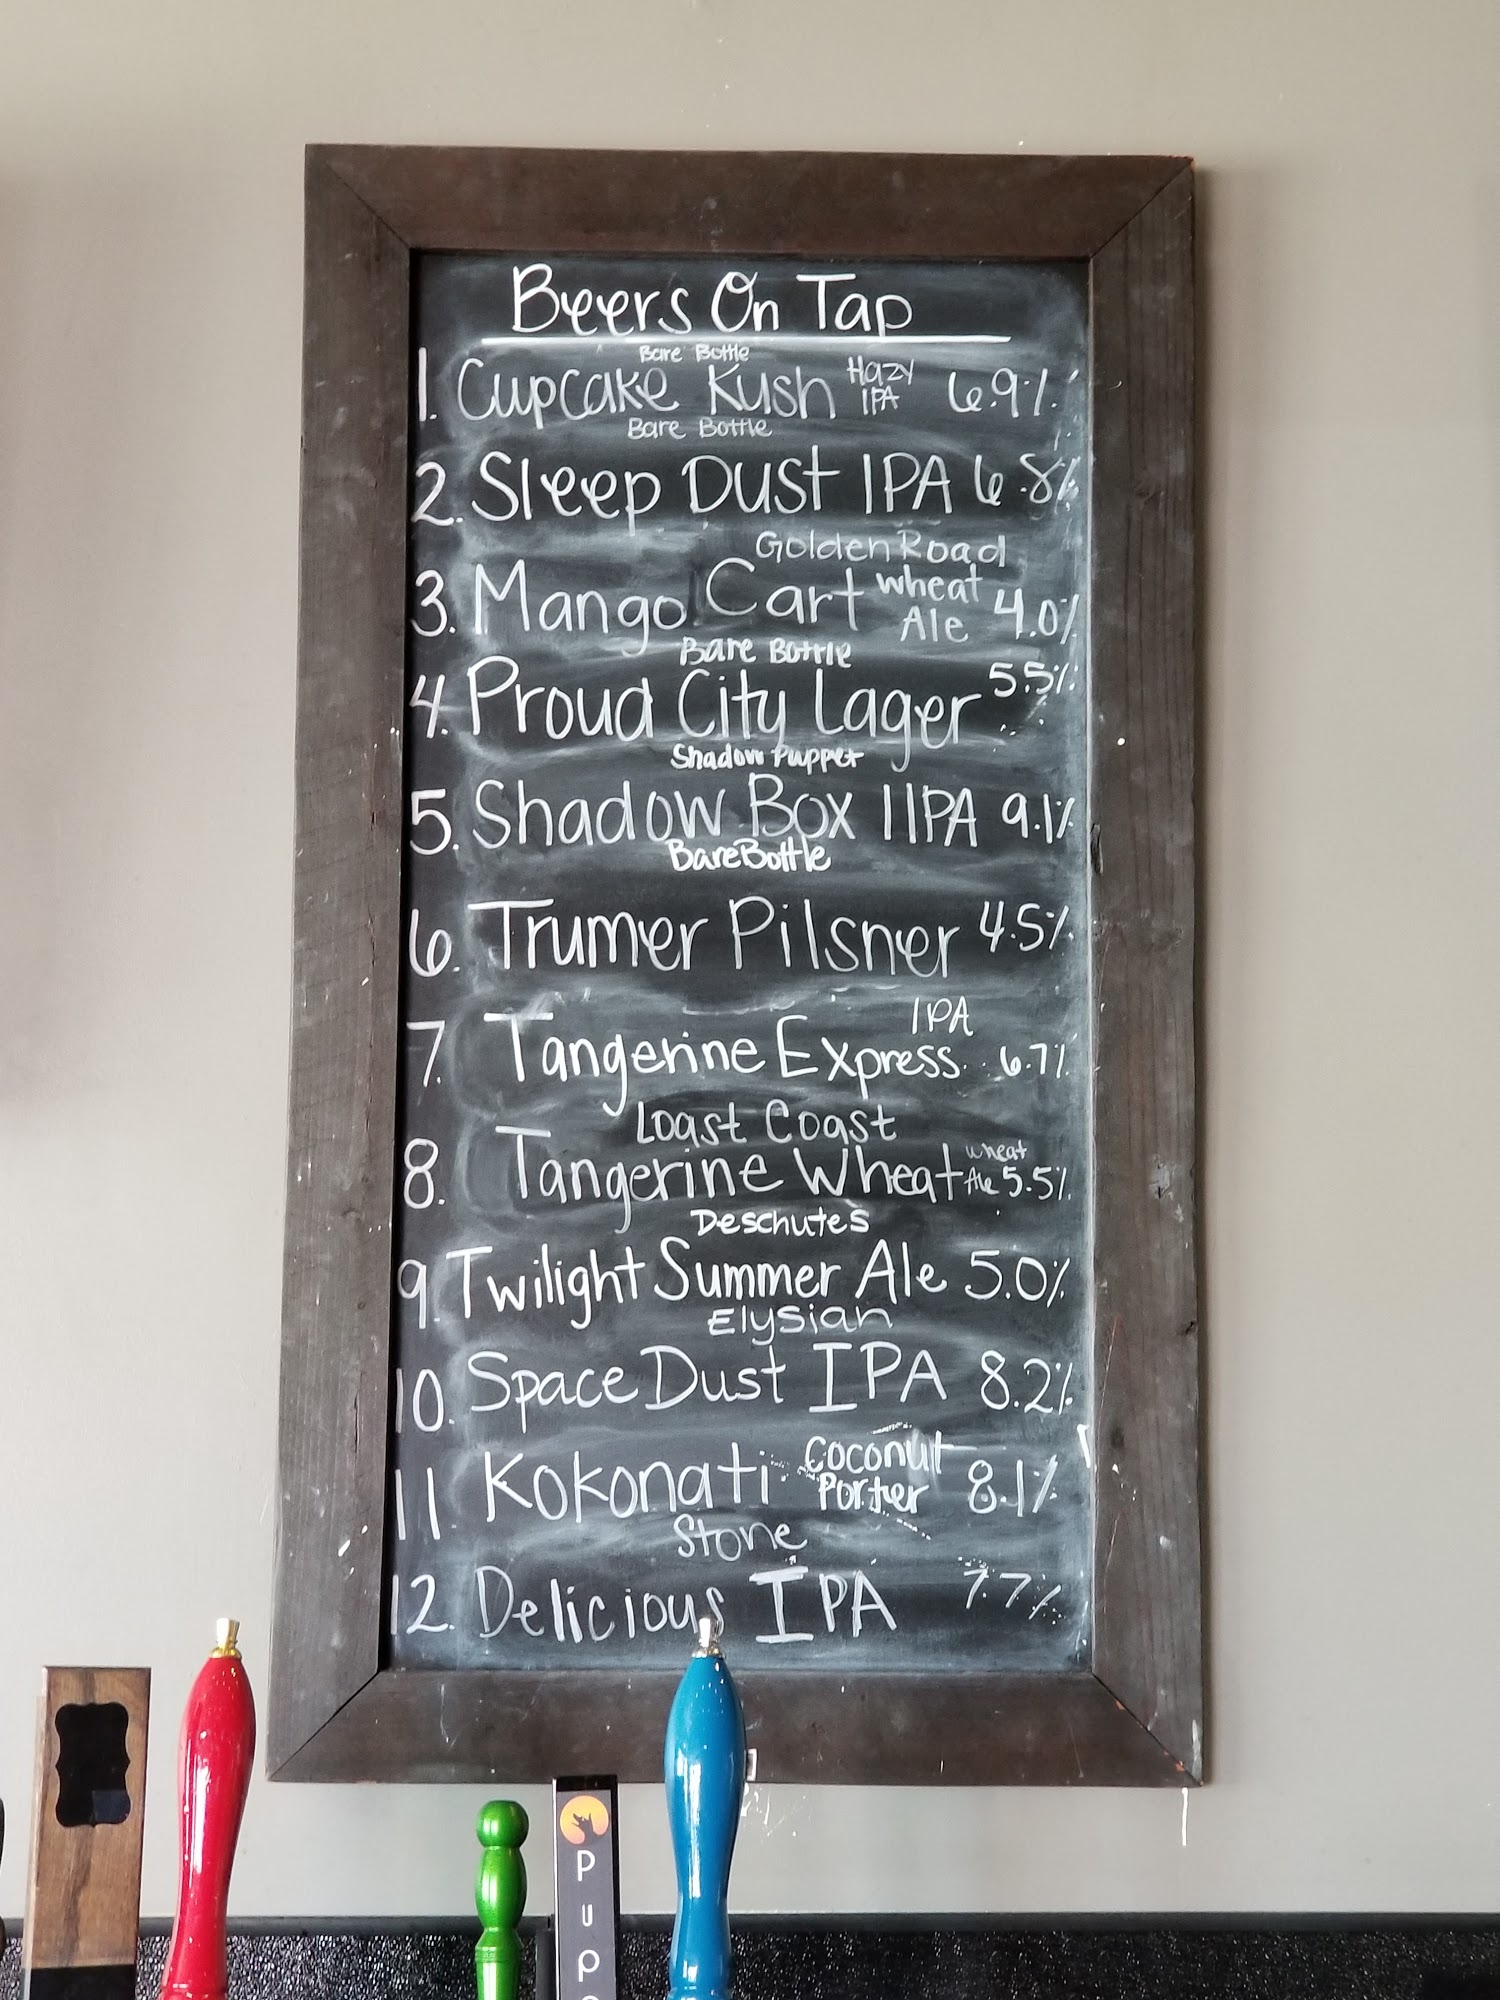 Beers On Tap
Bare Bottle
1. Cupcake Kush Hazy IPA 6.9%
Bare Bottle
2. Sleep Dust IPA 6.8%
Golden Road
3. Mango Cart Wheat Ale 4.0%
Bare Bottle
4. Proud City Lager 5.5%
Shadow Puppet
5. Shadow Box IIPA 9.1%
BareBottle
6. Trumer Pilsner 4.5%
7. Tangerine Express IPA 6.7%
Loast Coast
8. Tangerine Wheat Wheat Ale 5.5%
Deschutes
9. Twilight Summer Ale 5.0%
Elysian
10. Space Dust IPA 8.2%
11 Kokonati Coconut Porter 8.1%
Stone
12. Delicious IPA 7.7%
Pup